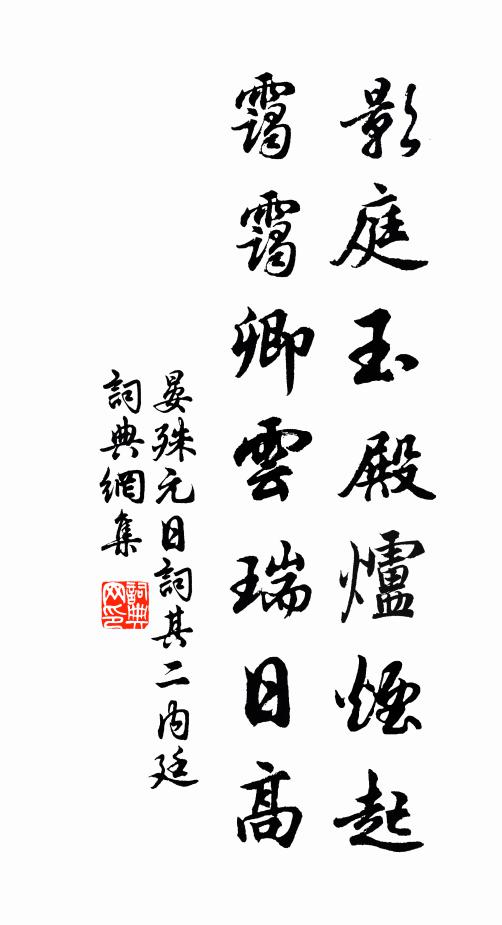 影庭玉殿爐煙起
靄靄卿雲瑞日高
晏殊元日詞其二內廷
詞典網集
詞典網印